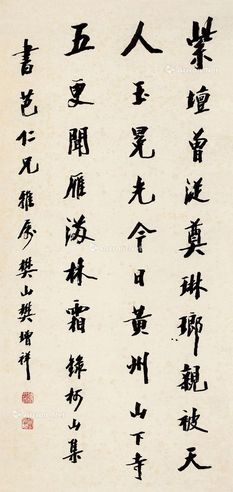 紫壇曾從奠琳瑯親被天
人玉冕光今日黃州山下寺
五更聞雁滿林霜 錄柯山集
書芭仁兄雅屬樊山樊增祥